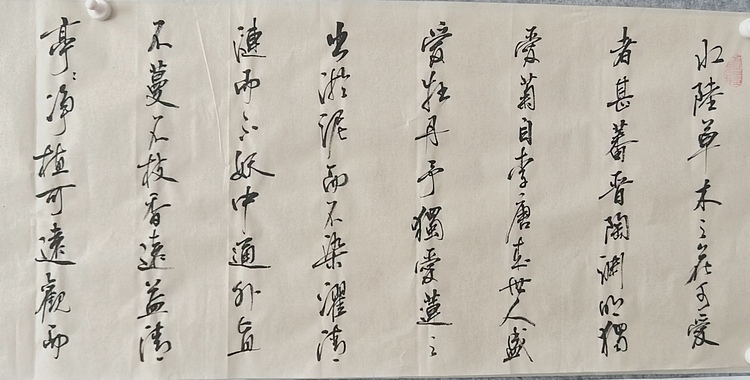 水陸草木之花可愛
者甚蕃晉陶淵明獨
愛菊自李唐來世人盛
愛牡丹予獨愛蓮之
出淤泥而不染濯清
漣而不妖中通外直
不蔓不枝香遠益清
亭〻淨植可遠觀而